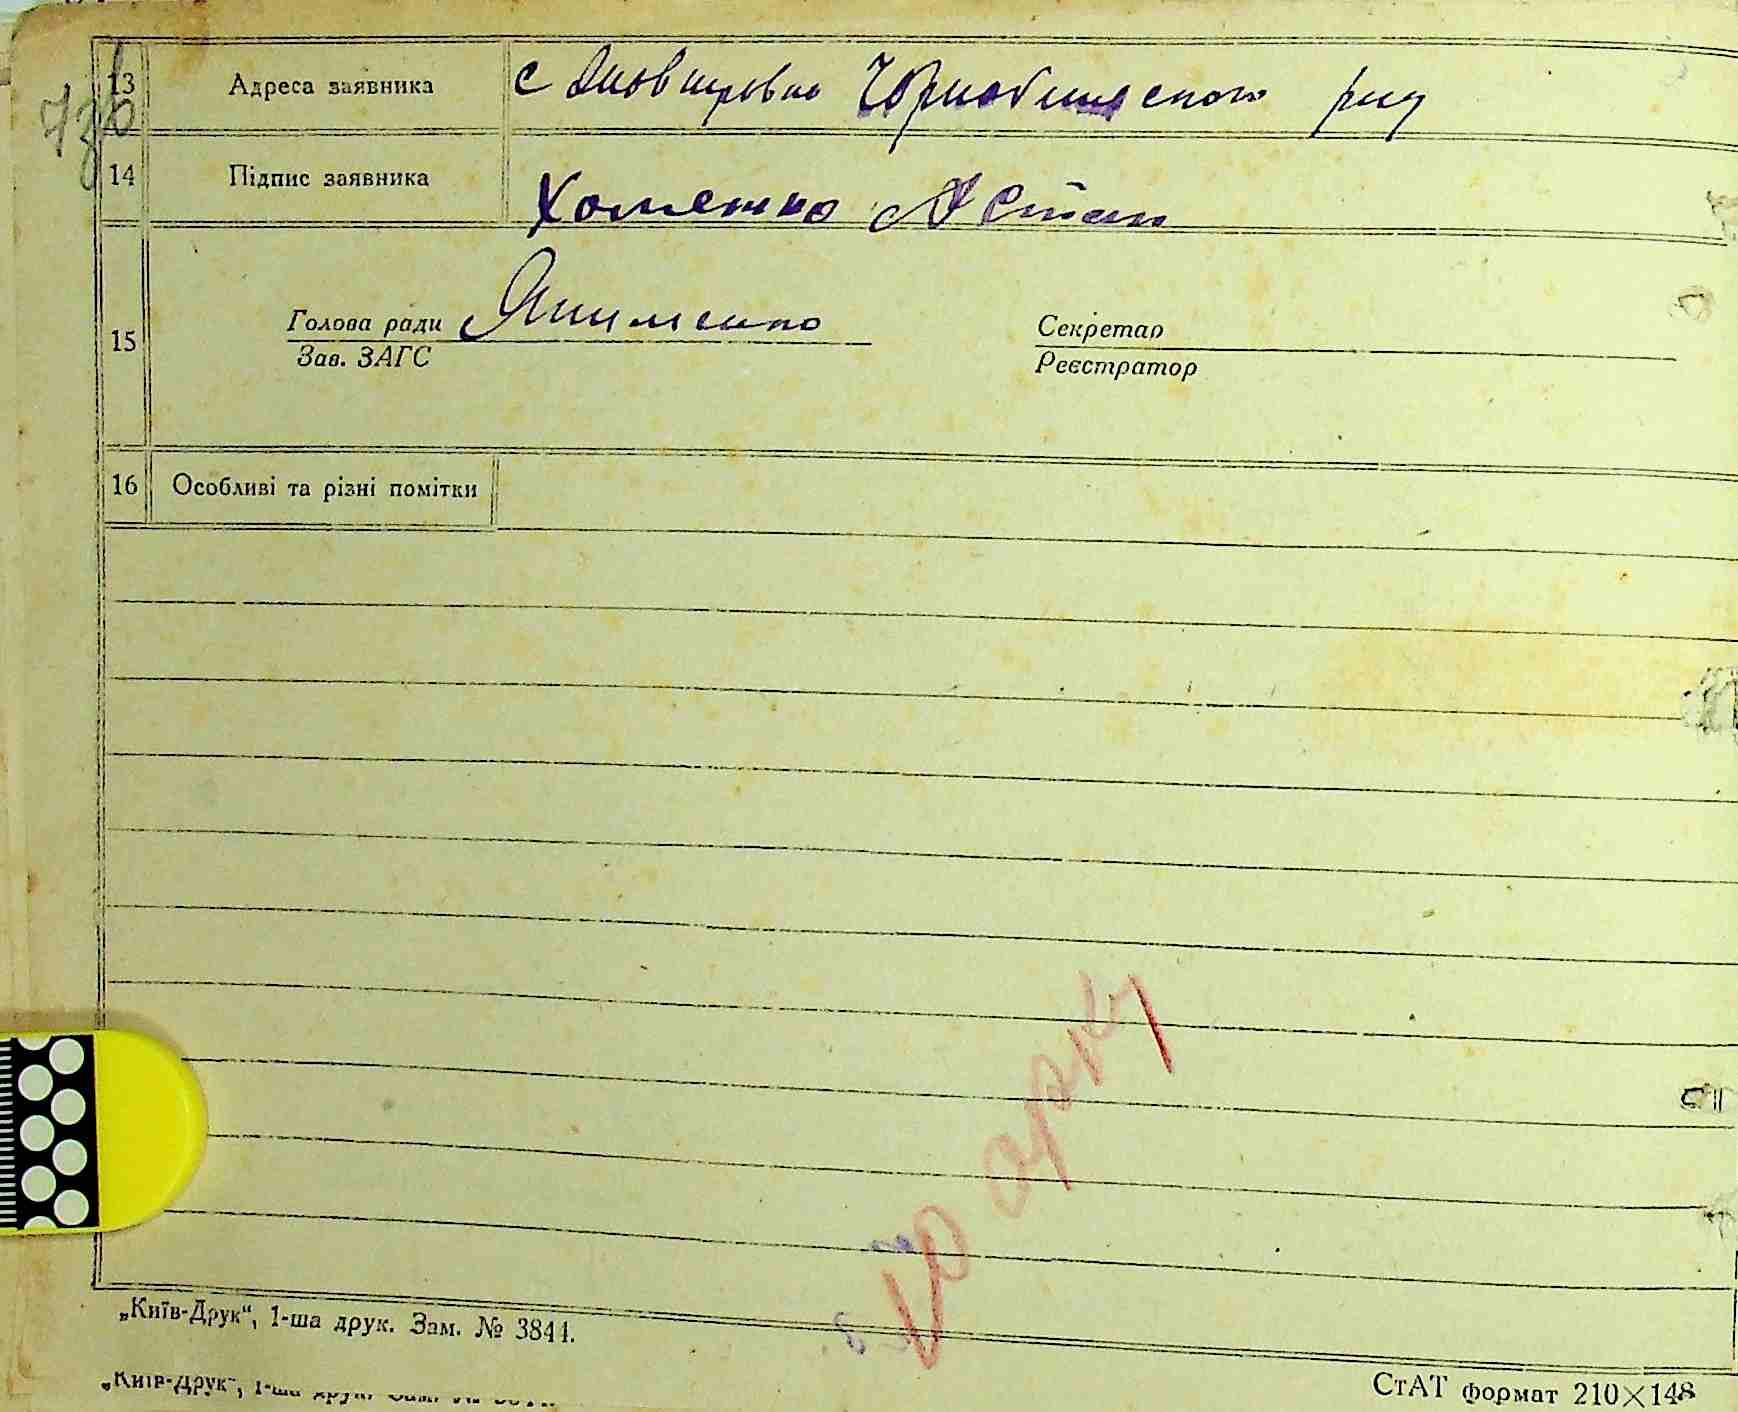 13 Адреса заявника с Чорнобильського р-ну
14 Підпис заявника Хоменко
15 Голова ради Якименко Секретар
Зав. ЗАГС Реєстратор
16 Особливі та різні помітки
10 арк
„Київ-Друк“, 1-ша друк. Зам. № 3844.
„Київ-Друк“, 1-ша друк.
СтАТ формат 210×148